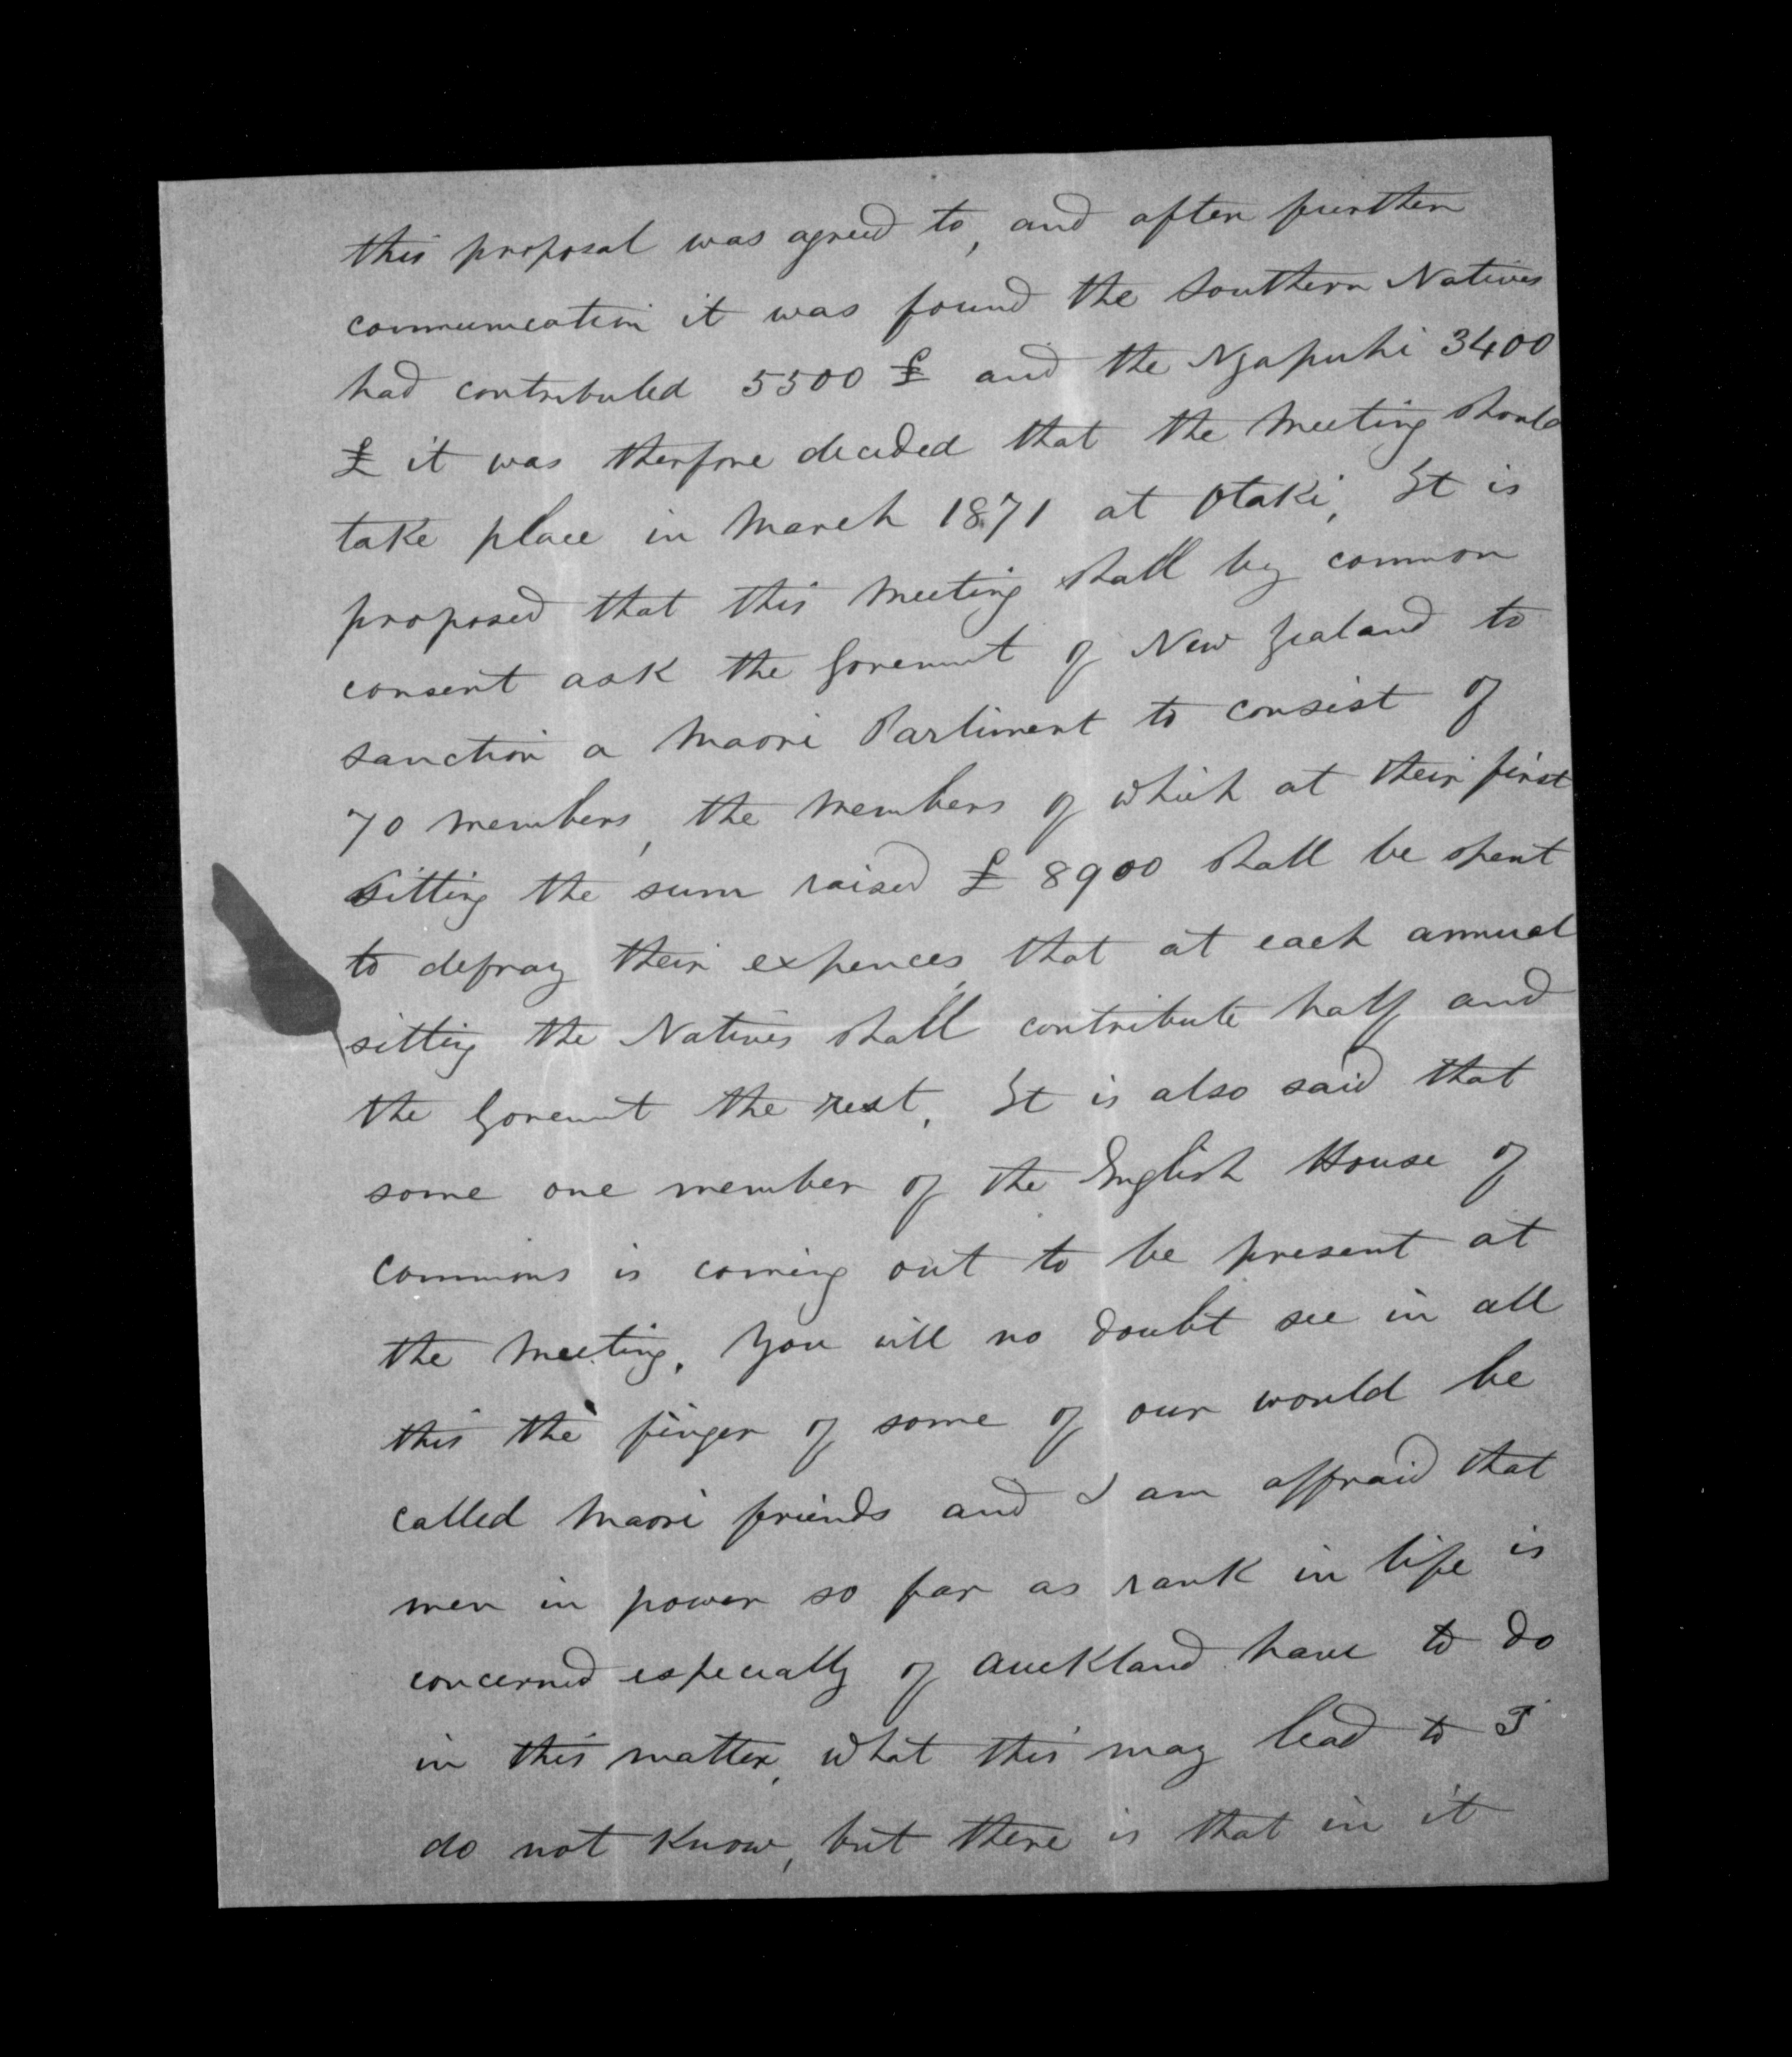 this proposal was agreed to, and after further
communication it was found the Southern Natives
had contributed 5500 £ and the Ngapuhi 3400
£ it was therfore decided that the Meeting should
take place in March 1871 at Otaki, It is
proposed that this Meeting shall by common
consent ask the Goverment of New Zealand to
sanction a Maori Parliment to consist of
70 members, the members of which at their first
sitting the sum raised £ 8900 shall be spent
to defray their expences, that at each annual
sitting the Natives shall contribute half and
the Goverment the rest, It is also said that
some one member of the English House of
Commons is coming out to be present at
the Meeting. You will no doubt see in all
this the finger of some of our would be
called Maori friends and I am affraid that
men in power so far as rank in life is
concerned especially of Auckland have to do
in this matter, what this may lead to I
do not know, but there is that in it